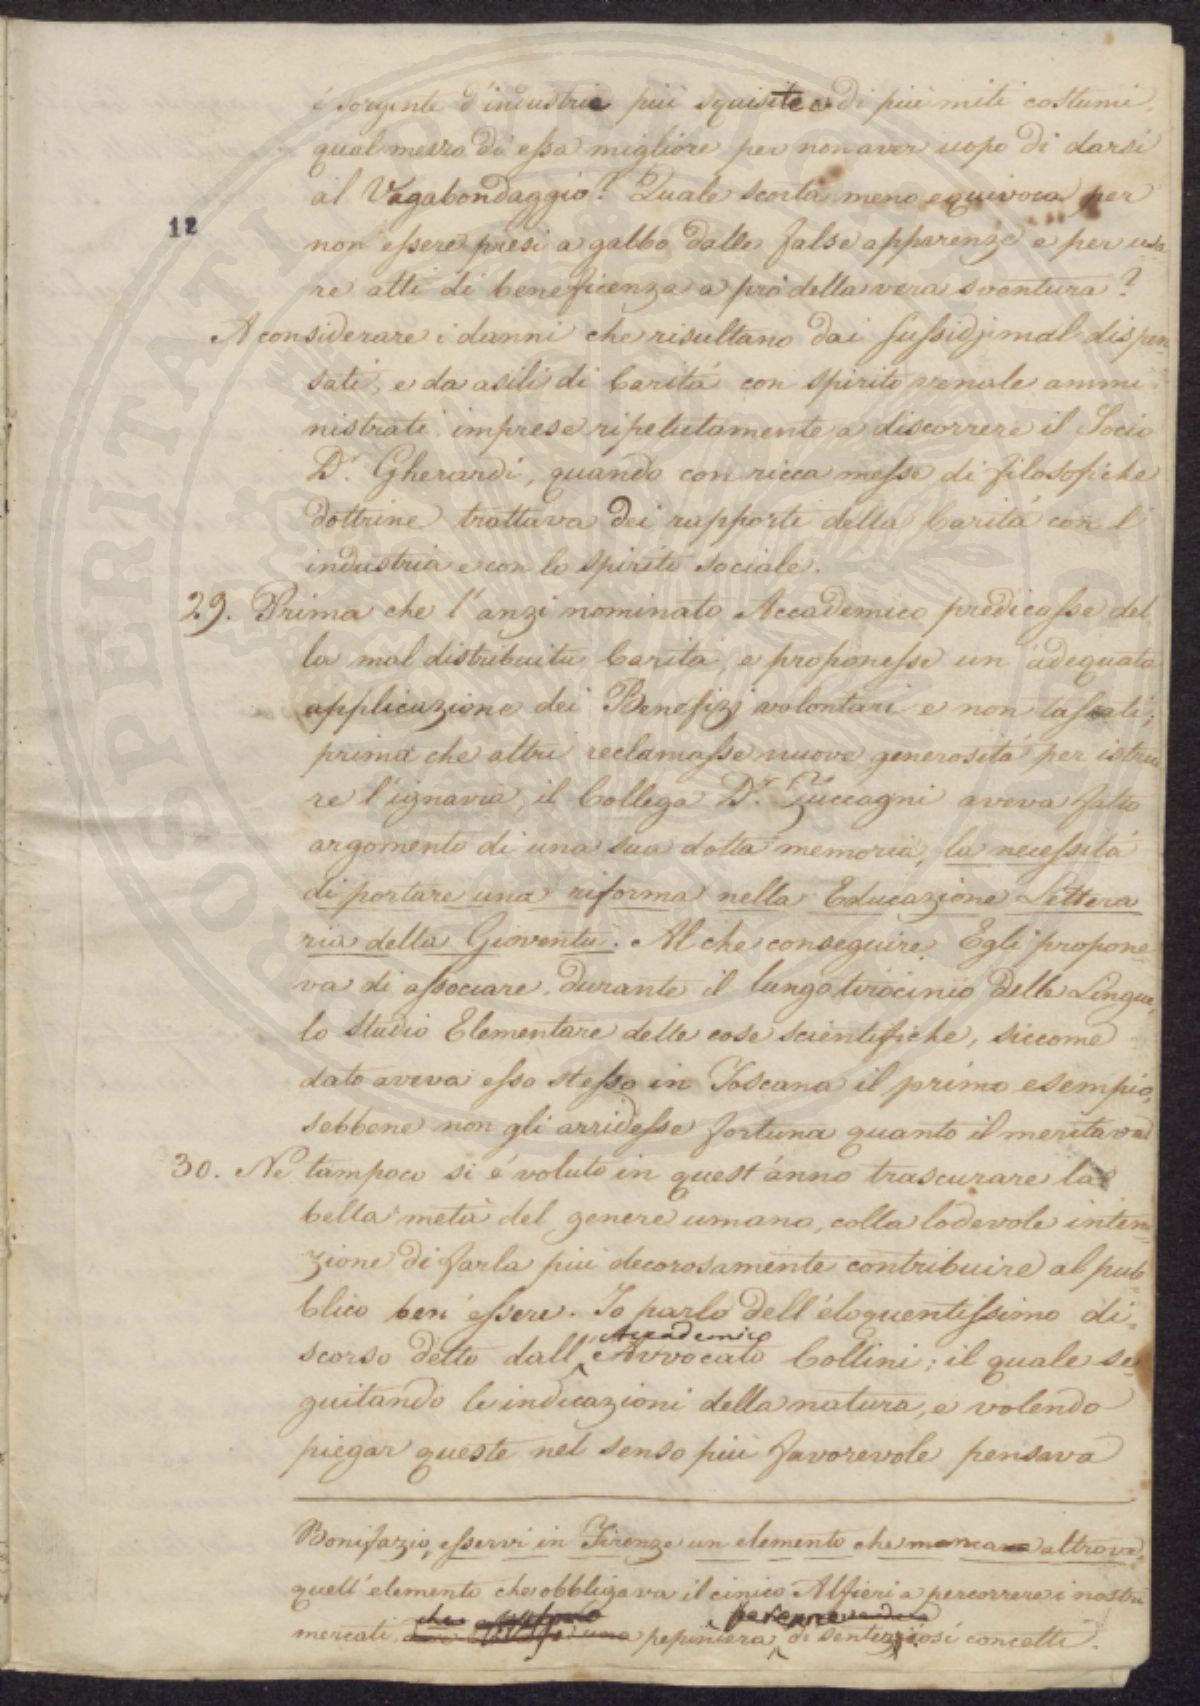 é sorgente d'industrie più squisite e di più miti costumi,
qual mezzo di essa migliore per non aver uopo di darsi
al Vagabondaggio? Quale scorta meno equivoca per
12
non essere presi a gabbo dalle false apparenze e per usa-
re atti di beneficenza a prò della vera sventura?
A considerare i danni che risultano dai sussidj mal dispen-
sati, e da asili di Carità con spirito venale ammi-
nistrati imprese ripetutamente a discorrere il Socio
Dr. Gherardi, quando con ricca messe di filosofiche
dottrine trattava dei rapporti della Carità con l'
industria e con lo spirito sociale.
29. Prima che l'anzi nominato Accademico predicasse del
la mal distribuita Carità, e proponesse un adequata
applicazione dei Benefizj volontari e non tassati;
prima che altri reclamasse nuove generosità per istrui
re l'ignavia, il Collega Dr. Zuccagni aveva fatto
argomento di una sua dotta memoria, la necessità
di portare una riforma nella Educazione Lettera
ria della Gioventù. Al che conseguire Egli propone-
va di associare, durante il lungo tirocinio delle Lingue,
lo studio Elementare delle cose scientifiche, siccome
dato aveva esso stesso in Toscana il primo esempio,
sebbene non gli arridesse fortuna quanto il meritava
30. Ne tampoco si é voluto in quest'anno trascurare la
bella metà del genere umano, colla lodevole inten-
zione di farla più decorosamente contribuire al pub-
blico ben'essere. Io parlo dell'eloquentissimo di-
Accademico
scorso detto dall'Avvocato Collini; il quale se-
guitando le indicazioni della natura, e volendo
piegar queste nel senso più favorevole pensava
Bonifazio, esservi in Firenze un elemento che manca altrove,
quell'elemento che obbligava il cinico Alfieri a percorrere i nostri
che
mercati, una pepiniera di sentenziosi concetti.
PROSPERITATI PUBLICAE